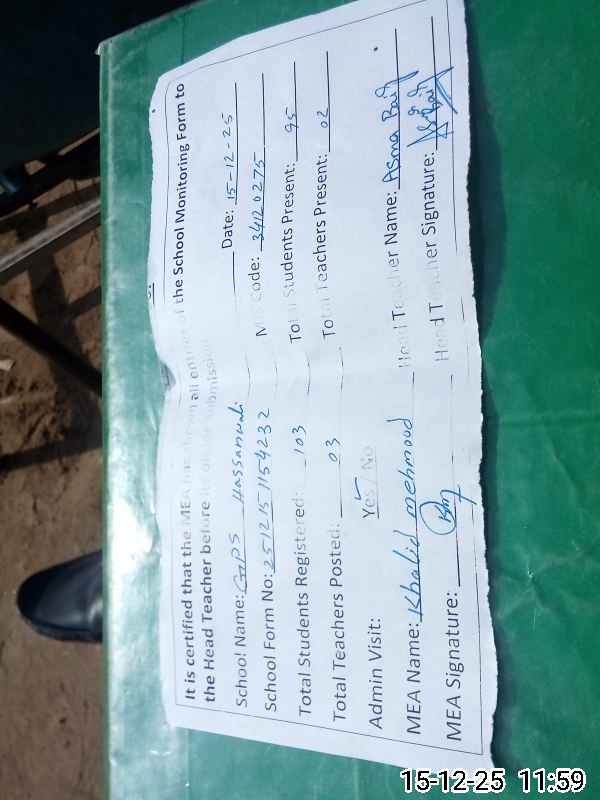 It is certified that the MEA has shown all entries of the School Monitoring Form to
the Head Teacher before its online submission
School Name: GGPS Hassanwali Date: 15-12-25
School Form No: 2512151154232 MEA Code: 34120275
Total Students Registered: 103 Total Students Present: 95
Total Teachers Posted: 03 Total Teachers Present: 02
Admin Visit: Yes / No
MEA Name: Khalid mehmood Head Teacher Name: Asma Baig
MEA Signature: Head Teacher Signature:
15-12-25 11:59